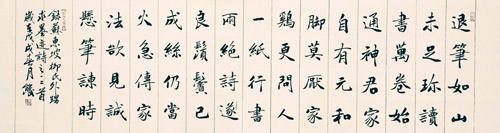 退筆如山
未足珍讀
書萬卷始
通神君家
自有元和
脚莫厭家
鷄更問人
一紙行書
兩絕詩遂
良鬚鬢已
成絲仍當
火急傳家
法欲見誠
懸筆諫時
錄蘇東坡柳氏外甥
求筆迹詩之二首
歲戊戌月